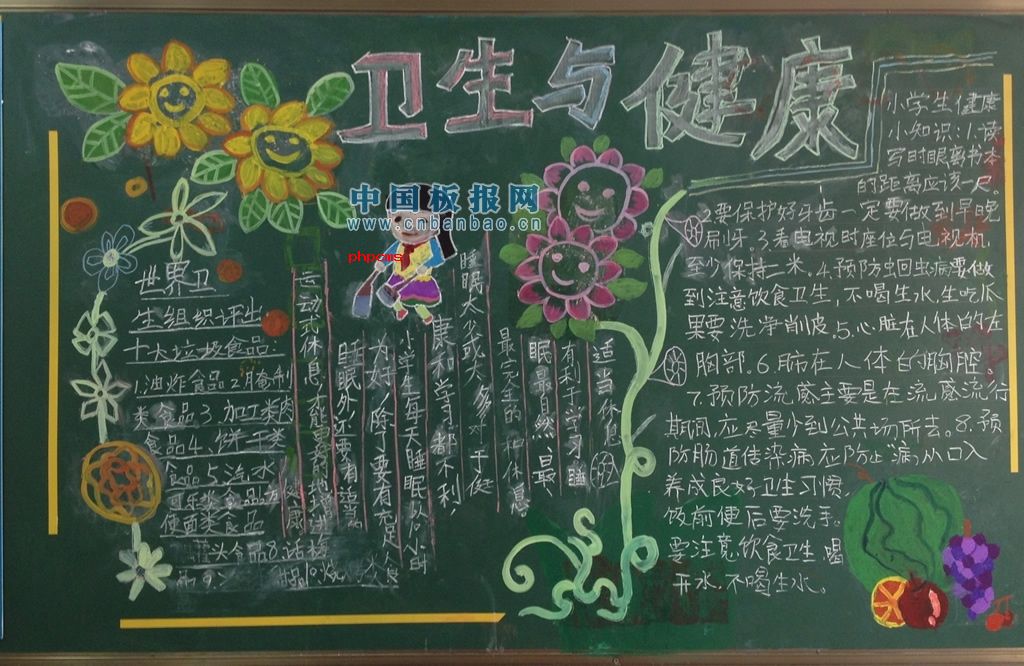 卫生与健康
中国板报网
www.cnbanbao.cn
phpcms
世界卫
生组织评出
十大垃圾食品
1.油炸食品2.腌制
类食品3.加工类肉
食品4.饼干类
食品5.汽水
可乐类食品6.方
便面类食品
罐头食品8.话梅
适当休息
有利于学习睡
眠最自然、最
最完全的一种休息
睡眠太少或太多对于健
康和学习都不利,
小学生每天睡眠以八小时
为好,除了要有充足
睡眠外还要有适当
运动和休息,才能更好
小学生健康
小知识:1.读
写时眼离书本
的距离应该一尺。
2.要保护好牙齿一定要做到早晚
刷牙。3.看电视时座位与电视机
至少保持二米。4.预防蛔虫病要做
到注意饮食卫生,不喝生水,生吃瓜
果要洗净削皮。5.心脏在人体的左
胸部。6.肺在人体的胸腔。
7.预防流感主要是在流感流行
期间,应尽量少到公共场所去。8.预
防肠道传染病应防止“病从口入
养成良好卫生习惯,
饭前便后要洗手。
要注意饮食卫生,喝
开水,不喝生水。